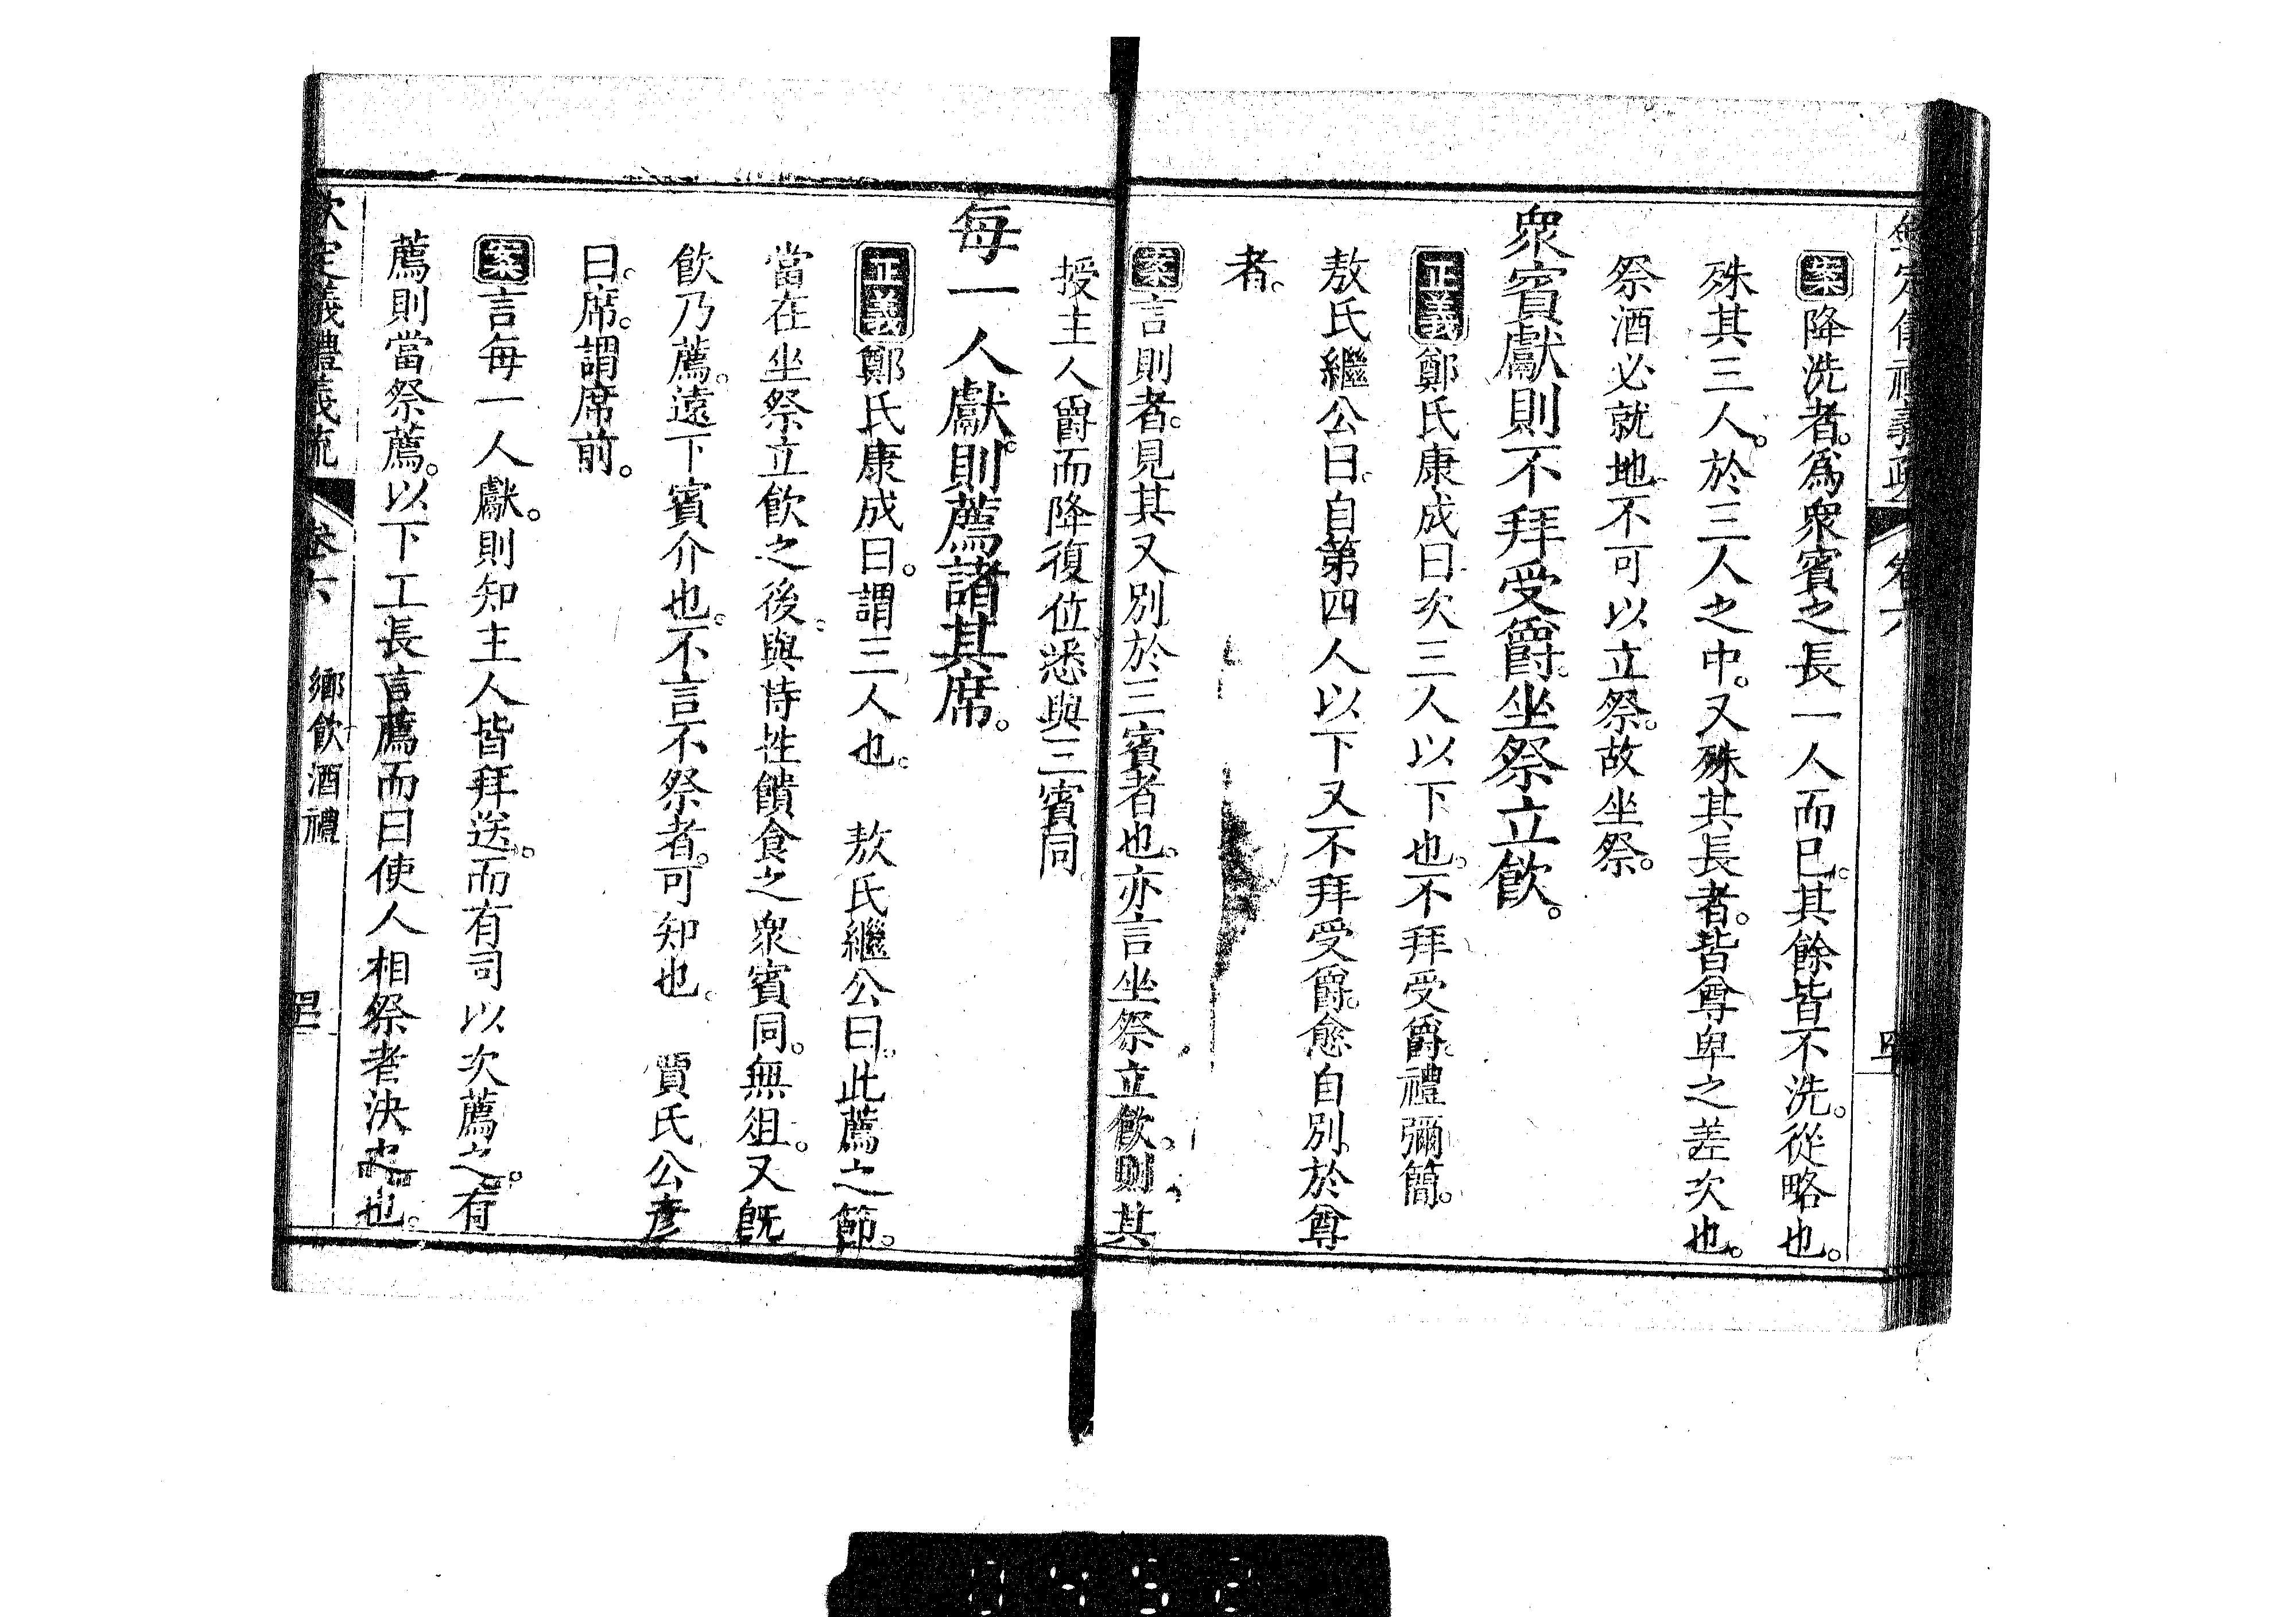 欽定儀禮義疏 卷六
案降洗者。爲衆賓之長一人而已。其餘皆不洗。從略也。
殊其三人。於三人之中。又殊其長者。皆尊卑之差次也。
祭酒必就地。不可以立祭。故坐祭。
衆賓獻則不拜受爵。坐祭立飮。
正義鄭氏康成曰。次三人以下也。不拜受爵。禮彌簡。
敖氏繼公曰。自第四人以下又不拜受爵。愈自別於尊
者。
案言則者。見其又別於三賓者也。亦言坐祭立飮。則其
授主人爵而降復位悉與三賓同
每一人獻。則薦諸其席。
正義鄭氏康成曰。謂三人也。 敖氏繼公曰。此薦之節。
當在坐祭立飮之後。與特牲饋食之衆賓同。無俎。又旣
飮乃薦。遠下賓介也。不言不祭者。可知也。 賈氏公彥
曰。席。謂席前。
案言每一人獻。則知主人皆拜送。而有司以次薦之。有
薦則當祭薦。以下工長言薦而曰使人相祭者決之也。
欽定義禮義疏 卷六 鄉飮酒禮